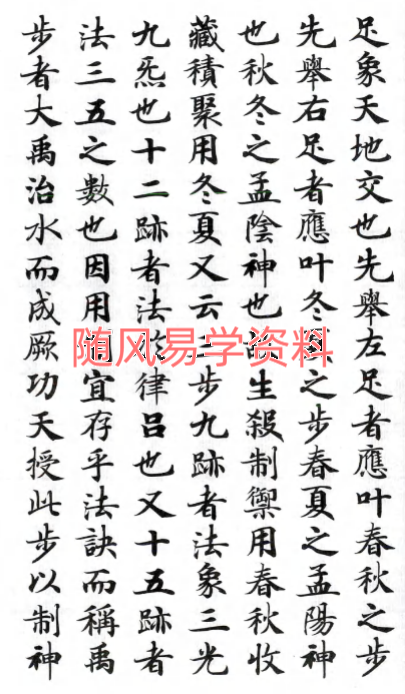 足象天地交也先舉左足者應叶春秋之步
先舉右足者應叶冬夏之步春夏之孟陽神
也秋冬之孟陰神也故生殺制禦用春秋收
藏積聚用冬夏又云三步九跡者法象三光
九炁也十二跡者法於律呂也又十五跡者
法三五之數也因用宜存乎法訣而稱禹
步者大禹治水而成厥功天授此步以制神
随风易学资料